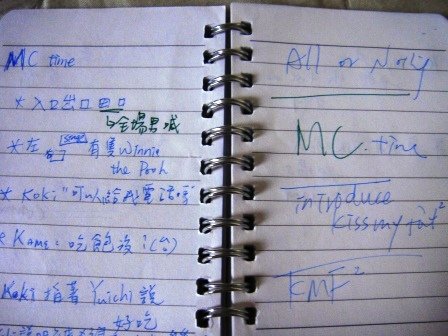 MC time
* 入口出口出口
全場男喊
* 左 有隻Winnie
the Pooh
* Koki "可以給我電話嗎
* Kame: 吃飽沒?(台)
Koki 指著 Yuichi 說
好吃
All or Noting
MC time
introduce
kiss my fat²
KMF²